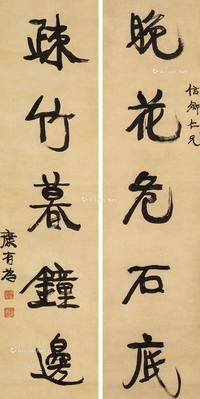 晚花危石底
信卿仁兄
疎竹暮鐘邊
康有為